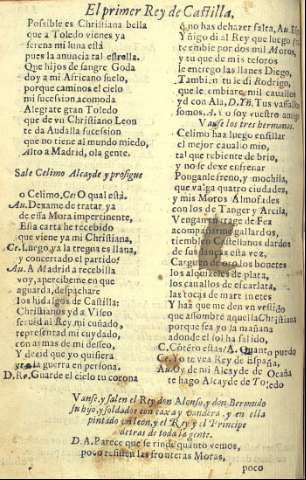 El primer Rey de Castilla.
Possible es Christiana bella
que a Toledo vienes ya
serena mi luna està
pues la anuncia tal estrella.
Que hijos de sangre Goda
doy a mi Africano suelo,
porque caminos el cielo
mi sucession acomoda
Alegrate gran Toledo
que de vn Christiano Leon
te da Audalla sucession
que no tiene al mundo miedo,
Alto a Madrid, ola gente.
Sale Celimo Alcayde y prosigue
o Celimo, Ce, O qual està.
Au. Dexame de tratar ya
de essa Mora impertinente,
Esta carta he recebido
que viene ya mi Christiana,
Ce. Luego, ya la tregua es llana,
y concertado el partido?
Au. A Madrid a recebilla
voy, apercibeme en que
aguarda, despachare
los hidalgos de Castilla:
Christianos y da a Viseo
seruid al Rey mi cuñado,
representad mi cuydado,
con armas de mi desseo,
Y dezid que yo quisiera
yr a la guerra en persona.
D. Ro. Guarde el cielo tu corona
q no has de hazer falta, Au.
Y digo al Rey que luego
te embie por dos mil Moros,
y tu que de mis tesoros
le metego las llanes Diego,
Tambien tu le di Rodrigo,
que le embiare mil cauallos
yd con Ala, D. Tu vassallo
somos. A. Yo soy vuestro amigo
Vanse los tres hermanos.
Celimo haz luego ensillar
el mejor cauallo mio,
tal que rebiente de brio,
y no se dexe enfrenar
Ponganle freno, y mochila,
que valga quatro ciudades,
y mis Moros Almofades
con los de Tanger y Arcila,
Vengan Farrage de Fea
acompañen gallardos,
tiemblen Castellanos dardos
de sus esta vez,
Carguen de los bonetes
los alquizeles de plata,
los cauallos de escarlata,
las rocas de martinetes
Y haz que me den vn vestido
que assombre aquella Christiana
porque sea yo la mañana
adonde el sol ha salido,
C. Contento estas? A. Quanto puedo
Ce. Yo te vea Rey de España,
Au. Oy de mi Alcayde de Ocaña
te hago Alcayde de Toledo
Vanse, y salen el Rey don Alonso, y don Bermudo
su hijo, y soldados con caxa y vandera, y en ella
pintado vn leon, y el Rey y el Principe
detras de toda la gente.
D. A. Parece que se rinde quanto vemos,
poco resisten las fronteras Moras,
poco